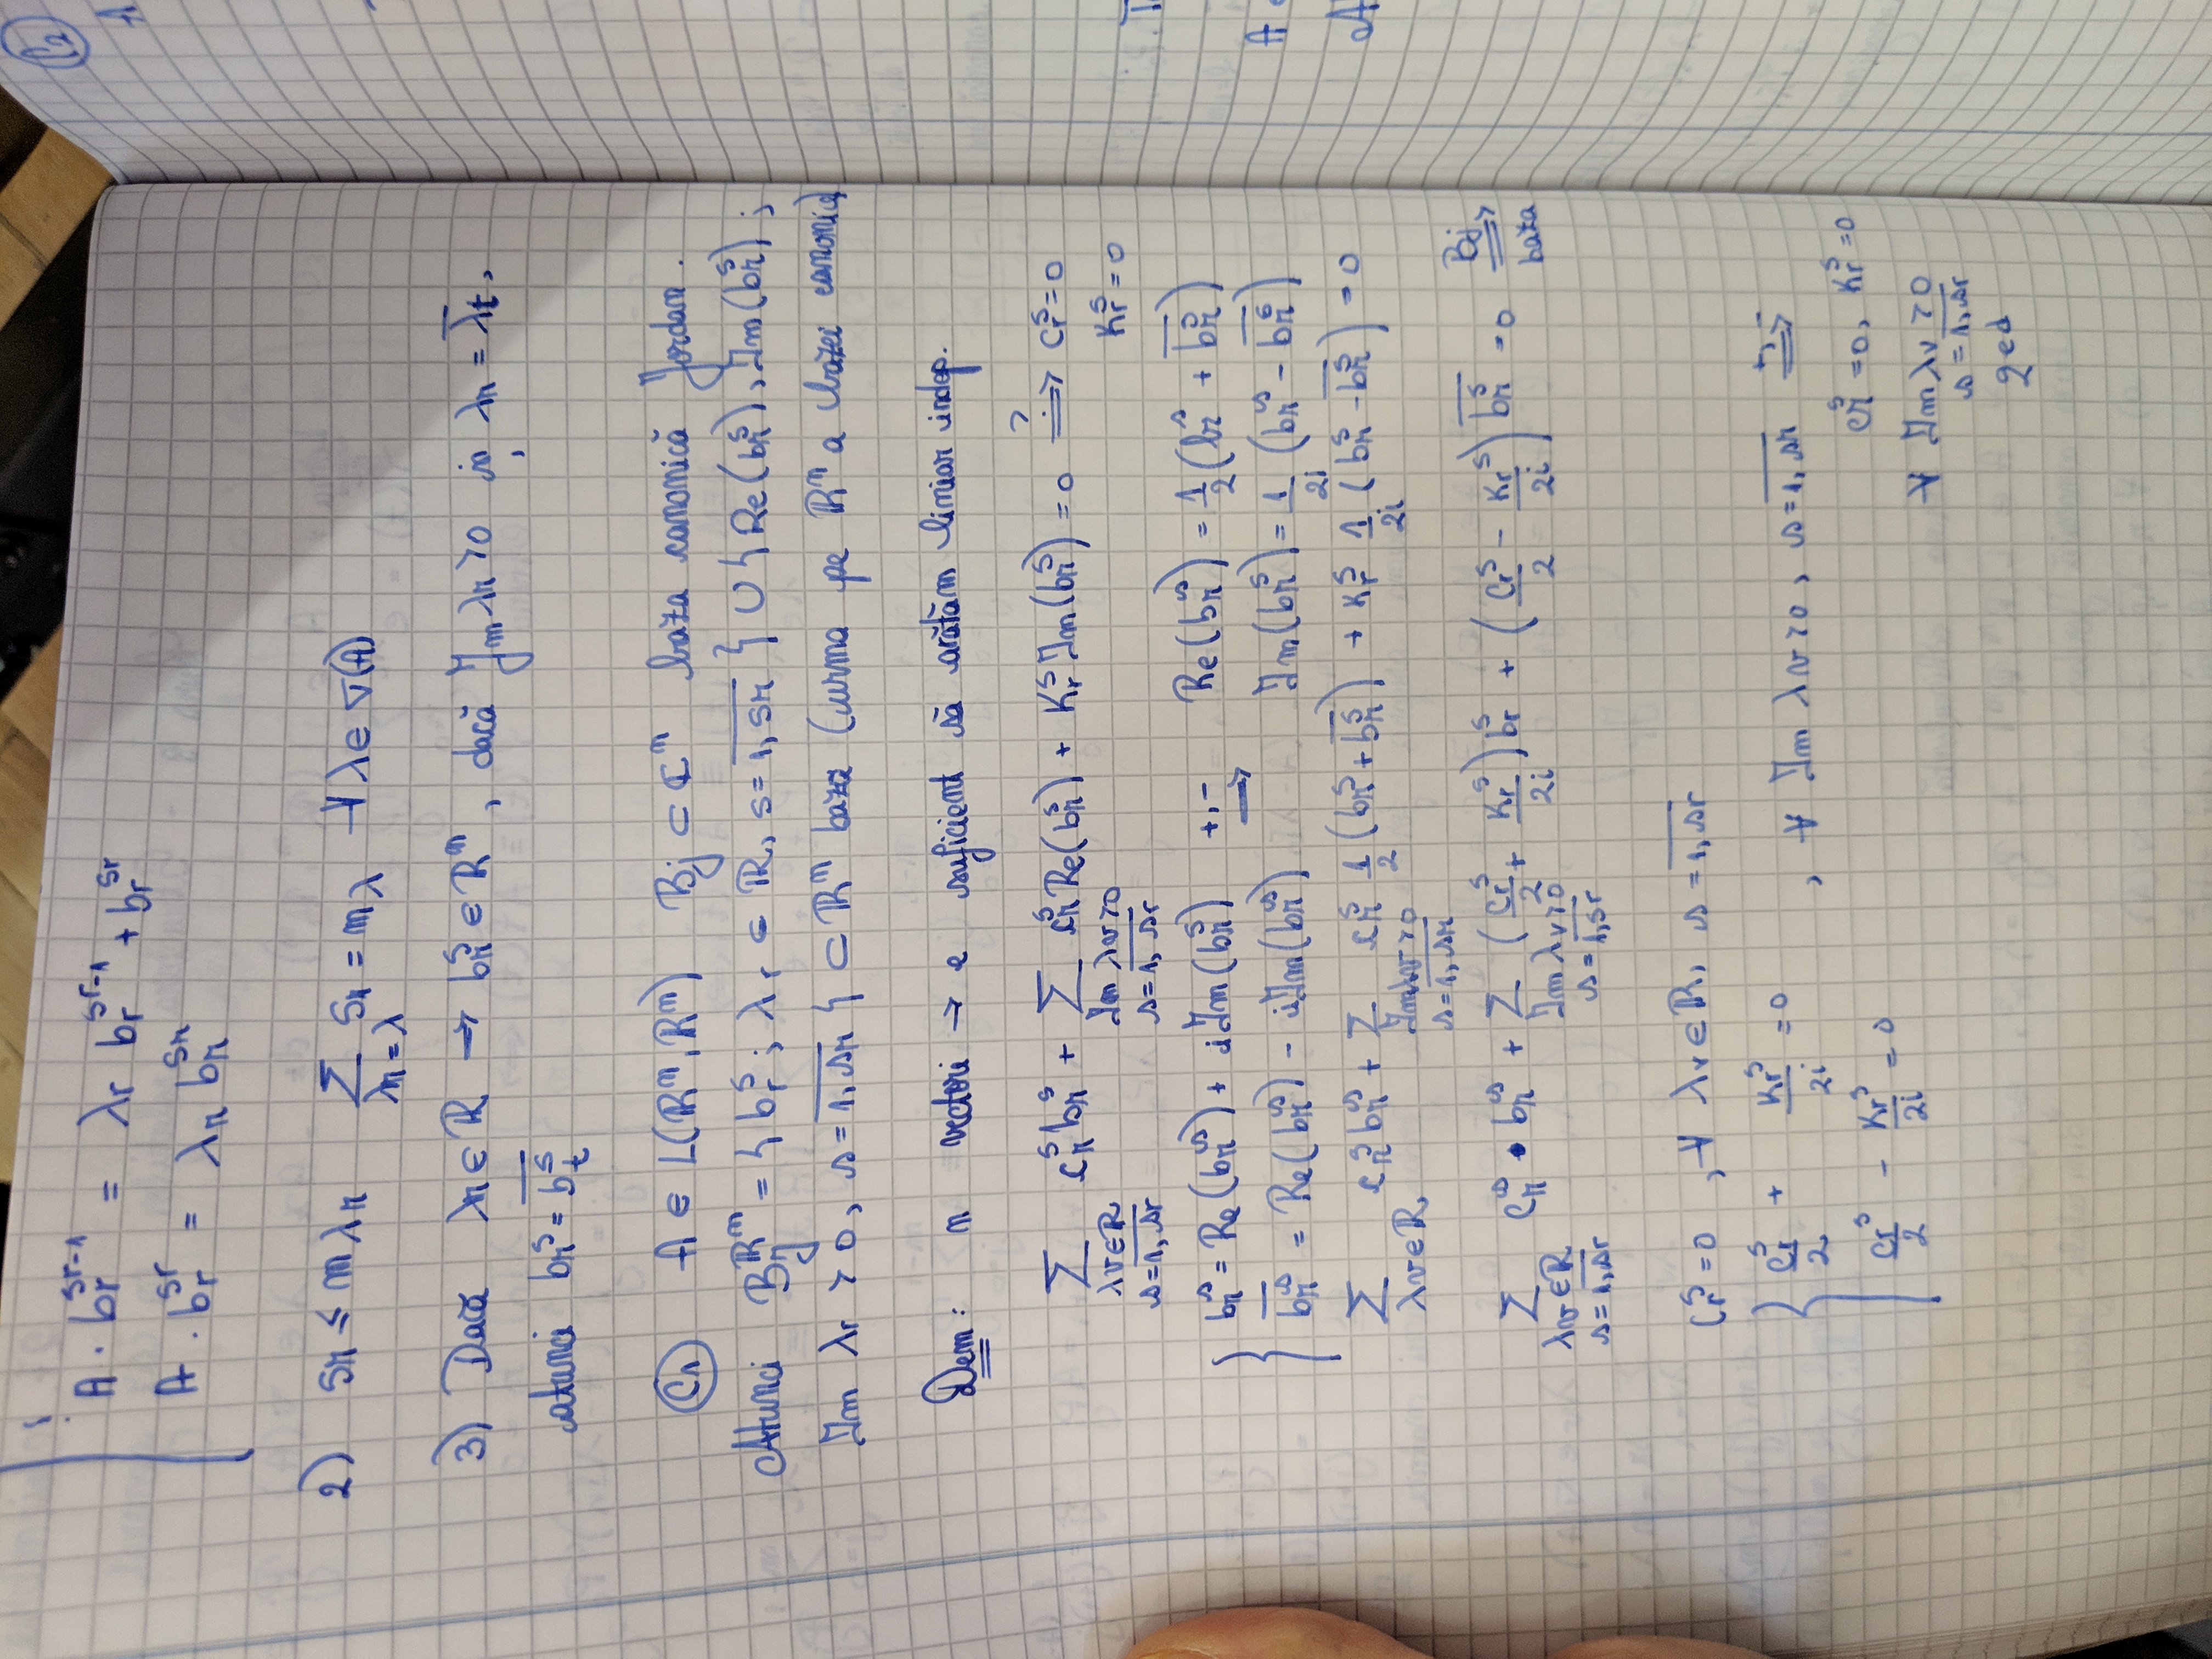 ⋮
A · b_r^{s_r-1} = λ_r b_r^{s_r-1} + b_r^{s_r}
A · b_r^{s_r} = λ_r b_r^{s_r}
2) s_r ≤ m_{λ_r} ∑_{λ_r = λ} s_r = m_λ ∀ λ ∈ σ(A)
3) Dacă λ_r ∈ ℝ → b_r^s ∈ ℝ^n, dacă Im λ_r > 0 și λ_r = \overline{λ_t},
atunci b_r^s = \overline{b_t^s}
(C1) A ∈ L(ℝ^n, ℝ^n) B_j ⊂ ℂ^n baza canonică Jordan.
Atunci B_j^{ℝ^n} = { b_r^s ; λ_r ∈ ℝ, s = \overline{1, s_r} } ∪ { Re(b_r^s), Im(b_r^s) ;
Im λ_r > 0, s = \overline{1, s_r} } ⊂ ℝ^n baza (urma pe ℝ^n a bazei canonice)
Dem: n vectori → e suficient să arătăm liniar indep.
∑_{λ_r ∈ ℝ, s = \overline{1, s_r}} c_r^s b_r^s + ∑_{Im λ_r > 0, s = \overline{1, s_r}} c_r^s Re(b_r^s) + K_r^s Im(b_r^s) = 0 ⟹^{?} c_r^s = 0
K_r^s = 0
b_r^s = Re(b_r^s) + i Im(b_r^s) ⟹^{+,-} Re(b_r^s) = 1/2 (b_r^s + \overline{b_r^s})
\overline{b_r^s} = Re(b_r^s) - i Im(b_r^s) Im(b_r^s) = 1/2i (b_r^s - \overline{b_r^s})
∑_{λ_r ∈ ℝ} c_r^s b_r^s + ∑_{Im λ_r > 0, s = \overline{1, s_r}} c_r^s 1/2 (b_r^s + \overline{b_r^s}) + K_r^s 1/2i (b_r^s - \overline{b_r^s}) = 0
∑_{λ_r ∈ ℝ, s = \overline{1, s_r}} c_r^s · b_r^s + ∑_{Im λ_r > 0, s = \overline{1, s_r}} (c_r^s/2 + K_r^s/2i) b_r^s + (c_r^s/2 - K_r^s/2i) \overline{b_r^s} = 0 ⟹^{B_j}_{baza}
c_r^s = 0 , ∀ λ_r ∈ ℝ, s = \overline{1, s_r}
c_r^s/2 + K_r^s/2i = 0 , ∀ Im λ_r > 0, s = \overline{1, s_r} ⟹^{+,-}
c_r^s = 0, K_r^s = 0
c_r^s/2 - K_r^s/2i = 0
∀ Im λ_r > 0
s = \overline{1, s_r}
qed